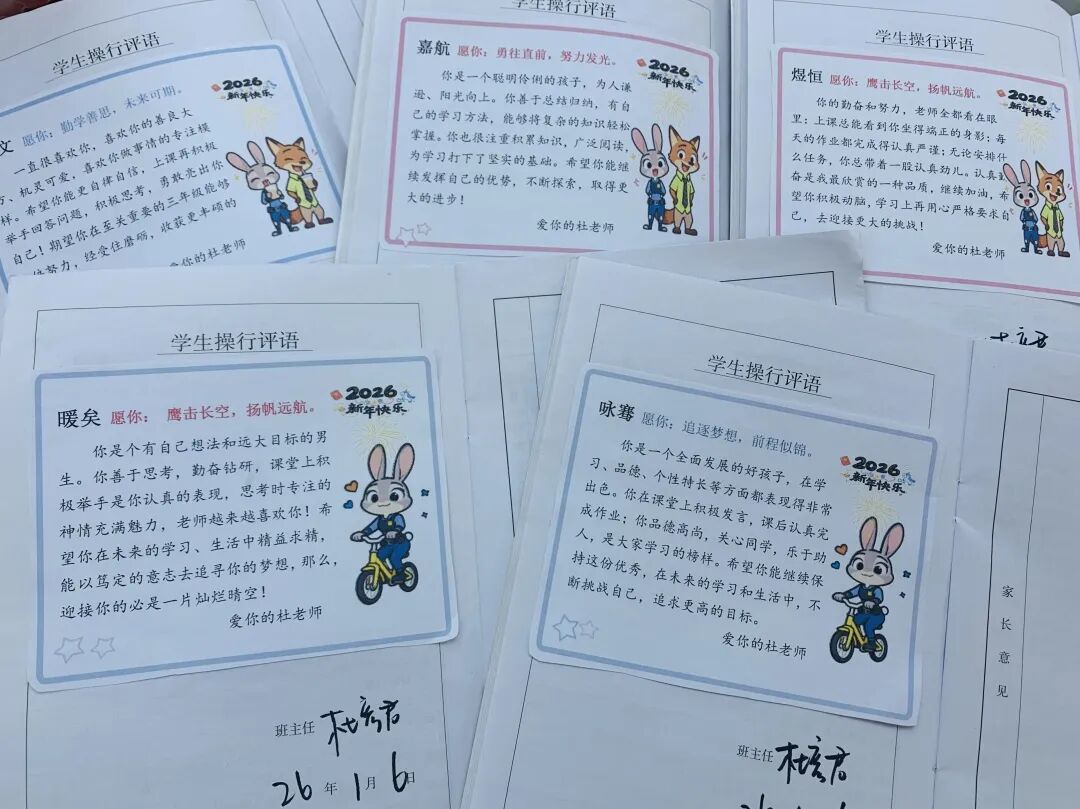 学生操行评语
文 愿你：勤学善思，未来可期。
2026
新年快乐
一直很喜欢你，喜欢你的善良大
方、机灵可爱，喜欢你做事情的专注模
样。希望你能更自律自信，上课再积极
举手回答问题，积极思考，勇敢亮出你
自己！期望你在至关重要的三年级能够
努力，经受住磨砺，收获更丰硕的
爱你的杜老师
学生操行评语
嘉航 愿你：勇往直前，努力发光。
2026
新年快乐
你是一个聪明伶俐的孩子，为人谦
逊、阳光向上。你善于总结归纳，有自
己的学习方法，能够将复杂的知识轻松
掌握。你也很注重积累知识，广泛阅读，
为学习打下了坚实的基础。希望你能继
续发挥自己的优势，不断探索，取得更
大的进步！
爱你的杜老师
学生操行评语
煜恒 愿你：鹰击长空，扬帆远航。
2026
新年快乐
你的勤奋和努力，老师全都看在眼
里：上课总能看到你坐得端正的身影；每
天的作业都完成得认真严谨；无论安排什
么任务，你总带着一股认真劲儿。认真勤
奋是我最欣赏的一种品质，继续加油，希
望你积极动脑，学习上再用心严格要求自
己，去迎接更大的挑战！
爱你的杜老师
学生操行评语
暖矣 愿你： 鹰击长空，扬帆远航。
2026
新年快乐
你是个有自己想法和远大目标的男
生。你善于思考，勤奋钻研，课堂上积
极举手是你认真的表现，思考时专注的
神情充满魅力，老师越来越喜欢你！希
望你在未来的学习、生活中精益求精，
能以笃定的意志去追寻你的梦想，那么，
迎接你的必是一片灿烂晴空！
爱你的杜老师
班主任 杜彦君
26 年 1 月 6 日
学生操行评语
咏骞 愿你：追逐梦想，前程似锦。
2026
新年快乐
你是一个全面发展的好孩子，在学
习、品德、个性特长等方面都表现得非常
出色。你在课堂上积极发言，课后认真完
成作业；你品德高尚，关心同学，乐于助
人，是大家学习的榜样。希望你能继续保
持这份优秀，在未来的学习和生活中，不
断挑战自己，追求更高的目标。
爱你的杜老师
班主任 杜彦君
家长意见